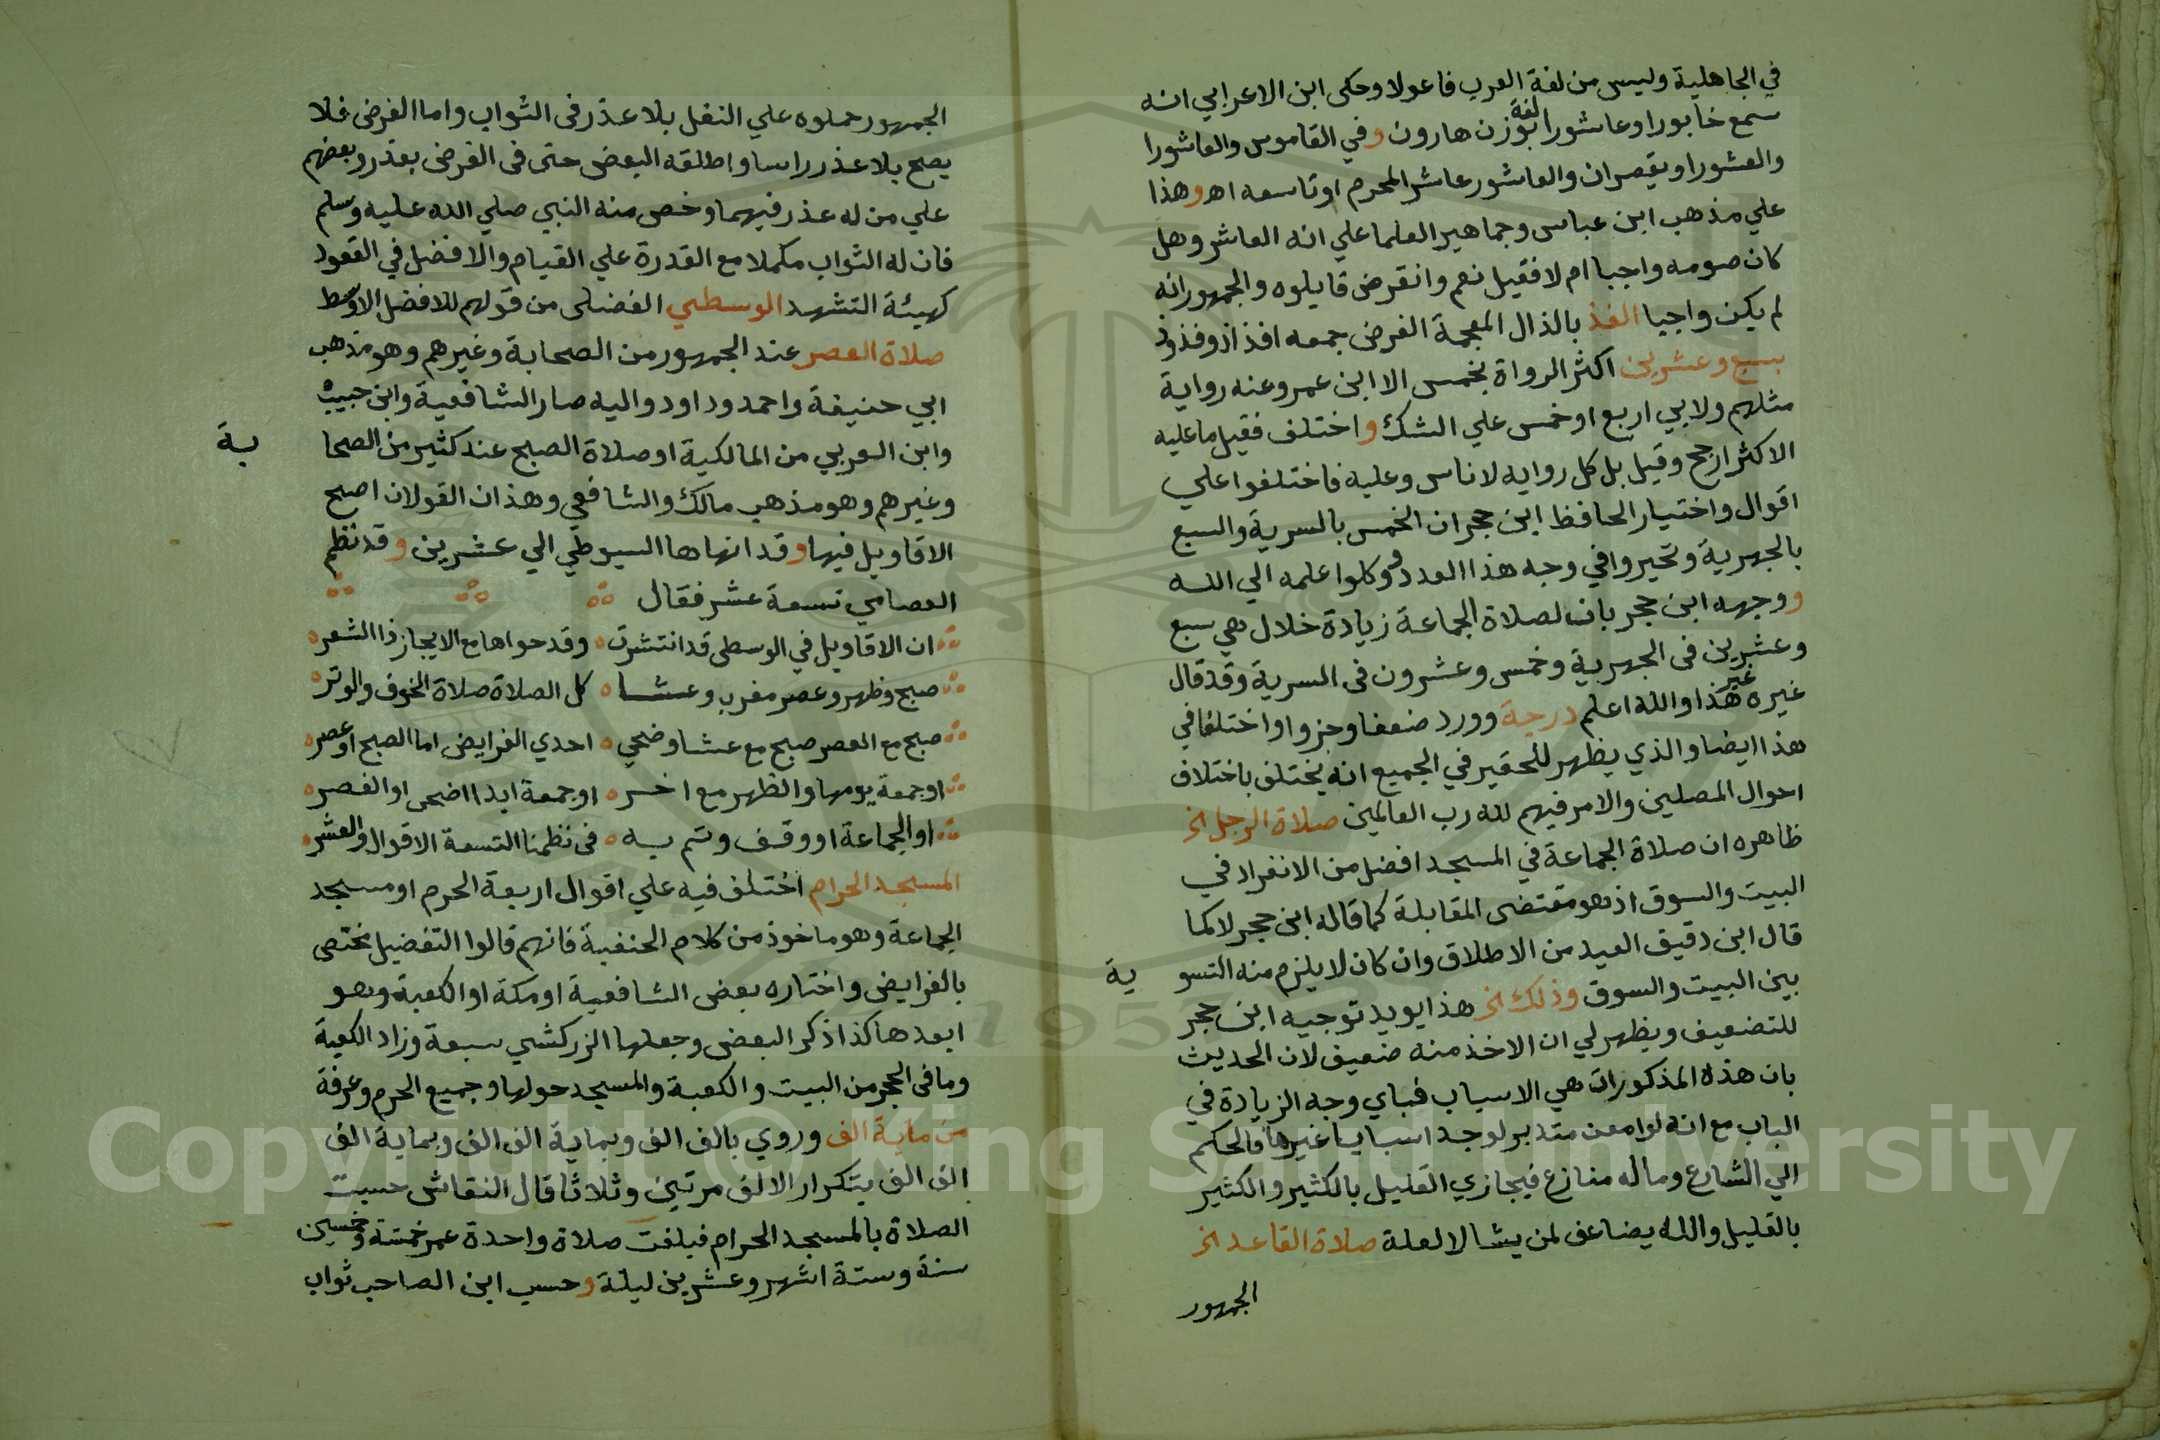 في الجاهلية وليس من لغة العرب فاعولا وحكى ابن الاعرابي انه
سمع خابورا وعاشورا لغة بوزن هارون وفي القاموس والعاشورا
والعشورا ويقصران والعاشور عاشر المحرم او تاسعه اهـ وهذا
علي مذهب ابن عباس وجماهير العلما علي انه العاشر وهل
كان صومه واجبا ام لا فقيل نعم وانقرض قايلوه والجمهور انه
لم يكن واجبا الفذ بالذال المعجمة الفرض جمعه افذاذ وفذوذ
بسبع وعشرين اكثر الرواة بخمس الا ابن عمر وعنه رواية
مثلهم ولابي اربع او خمس علي الشك واختلف فقيل ما عليه
الاكثر ارجح وقيل بل كل رواية لاناس وعليه فاختلفوا علي
اقوال واختيار الحافظ ابن حجر ان الخمس بالسرية والسبع
بالجهرية وتحيروا في وجه هذا العدد ووكلوا علمه الي الله
ووجهه ابن حجر بان لصلاة الجماعة زيادة خلال هي سبع
وعشرين في الجهرية وخمس وعشرون في السرية وقد قال
غيره غير هذا والله اعلم درجة وورد ضعفا وجزوا واختلفا في
هذا ايضا والذي يظهر للحقير في الجميع انه يختلف باختلاف
احوال المصلين والامر فيهم لله رب العالمين صلاة الرجل الخ
ظاهره ان صلاة الجماعة في المسجد افضل من الانفراد في
البيت والسوق اذ هو مقتضى المقابلة كما قاله ابن حجر لا كما
قال ابن دقيق العيد من الاطلاق وان كان لا يلزم منه التسو ية
بين البيت والسوق وذلك الخ هذا يويد توجيه ابن حجر
للتضعيف ويظهر لي ان الاخذ منه ضعيف لان الحديث
بان هذه المذكورات هي الاسباب فباي وجه الزيادة في
الباب مع انه لو امعن متدبر لوجد اسبابا غيرها فالحكم
الي الشارع وماله منازع فيجازي القليل بالكثير والكثير
بالقليل والله يضاعف لمن يشا لا لعلة صلاة القاعد الخ
الجمهور
الجمهور حملوه علي النفل بلا عذر في الثواب واما الفرض فلا
يصح بلا عذر راسا واطلقه البعض حتى في الفرض بعذر وبعضهم
علي من له عذر فيهما وخص منه النبي صلي الله عليه وسلم
فان له الثواب مكملا مع القدرة علي القيام والافضل في القعود
كهيئة التشهد الوسطى الفضلى من قولهم للافضل الاوسط
صلاة العصر عند الجمهور من الصحابة وغيرهم وهو مذهب
ابي حنيفة واحمد وداود واليه صار الشافعية وابن حبيب
وابن العربي من المالكية او صلاة الصبح عند كثير من الصحا بة
وغيرهم وهو مذهب مالك والشافعي وهذان القولان اصح
الاقاويل فيها وقد انهاها السيوطي الي عشرين وقد نظم
العصامي تسعة عشر فقال
ان الاقاويل في الوسطى قد انتشرت وقد حواها مع الايجاز ذا الشعر
صبح وظهر وعصر مغرب وعشا كل الصلاة صلاة الخوف والوتر
صبح مع العصر صبح مع عشا وضحي احدي الفرايض اما الصبح او عصر
او جمعة يومها والظهر مع اخر او جمعة ابدا اضحى او الفصر
او الجماعة او وقف وتم به في نظمنا التسعة الاقوال والعشر
المسجد الحرام اختلف فيه علي اقوال اربعة الحرم او مسجد
الجماعة وهو ماخوذ من كلام الحنفية فانهم قالوا التفضيل يختص
بالفرايض واختاره بعض الشافعية او مكة او الكعبة وهو
ابعدها كذا ذكر البعض وجعلها الزركشي سبعة وزاد الكعبة
وما في الحجر من البيت والكعبة والمسجد حولها وجميع الحرم وعرفة
من ماية الف وروي بالف الف وبماية الف الف وبماية الف
الف الف بتكرار الالف مرتين وثلاثا قال النقاش حسبت
الصلاة بالمسجد الحرام فبلغت صلاة واحدة عمر خمسة وخمسين
سنة وستة اشهر وعشرين ليلة وحسب ابن الصاحب ثواب
Copyright © King Saud University
195